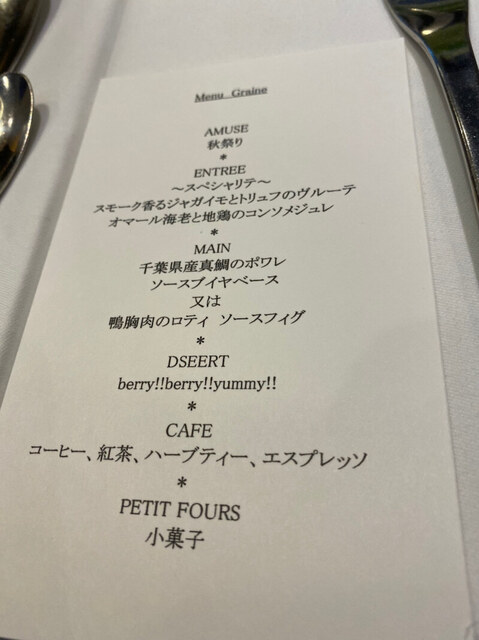 Menu Graine
AMUSE
秋祭り
*
ENTREE
～スペシャリテ～
スモーク香るジャガイモとトリュフのヴルーテ
オマール海老と地鶏のコンソメジュレ
*
MAIN
千葉県産真鯛のポワレ
ソースブイヤベース
又は
鴨胸肉のロティ ソースフィグ
*
DSEERT
berry!!berry!!yummy!!
*
CAFE
コーヒー、紅茶、ハーブティー、エスプレッソ
*
PETIT FOURS
小菓子